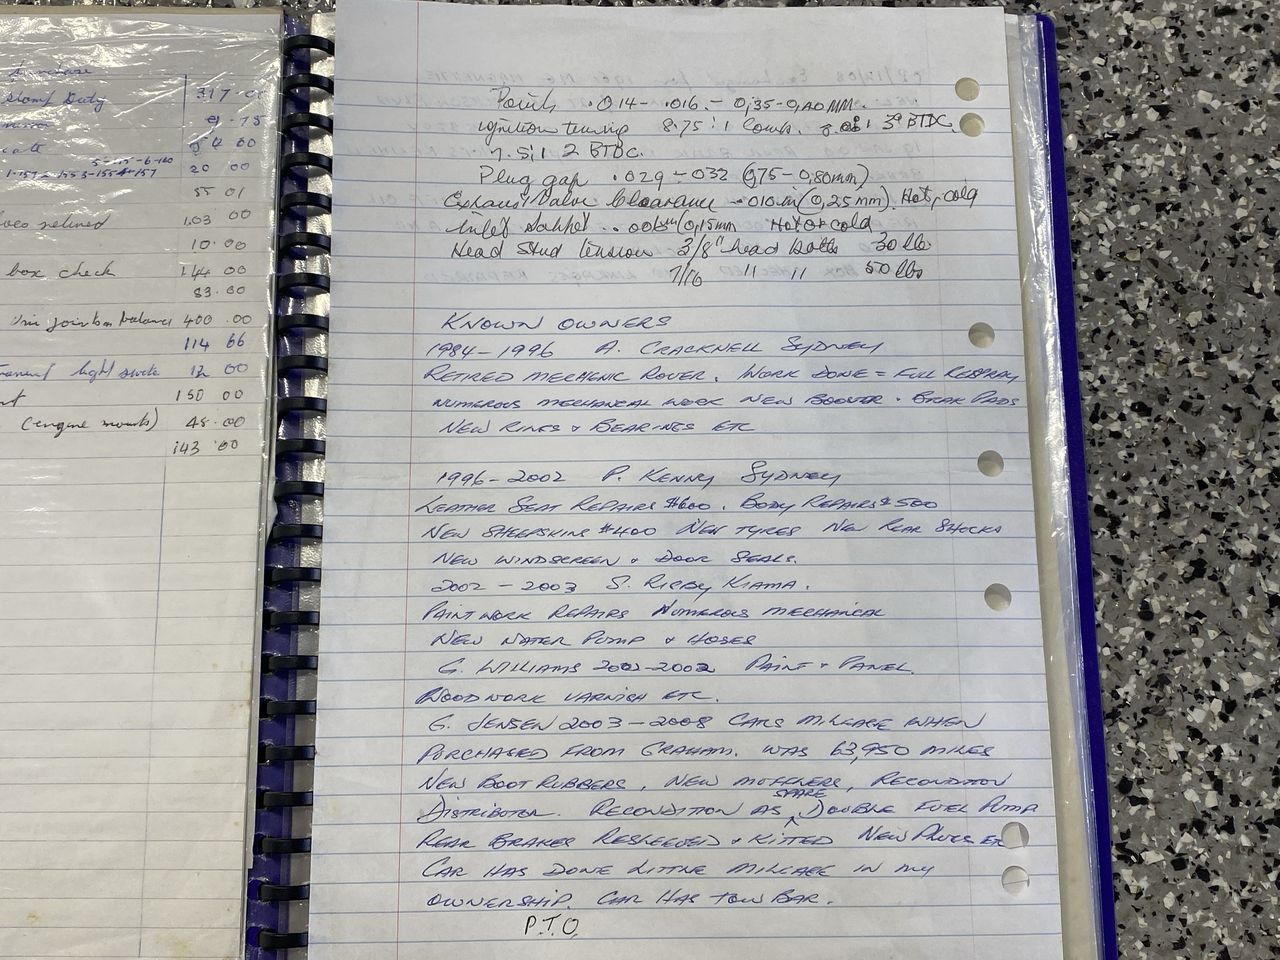 Stamp Duty 317.00
9.75
20 00
55 01
103 00
10.00
box check 144 00
83.00
balance 400.00
114 66
light 12 00
150 00
(engine mounts) 45.00
143.00
Points .014 - .016. - 0,35-0,40 MM.
ignition timing 8.75:1 Comb. 3° BTDC.
7.5:1 2 BTDC.
Plug gap .029 - 032 (,75-0,80mm)
Exhaust Valve Clearance .010 in (0,25 mm). Hot, cold
Inlet .006in (0,15mm Hot or cold
Head Stud tension 3/8" head bolts 30 lbs
7/16 " " 50 lbs
KNOWN OWNERS
1984-1996 A. CRACKNELL SYDNEY
RETIRED MECHENIC ROVER. WORK DONE = FULL RESPRAY
NUMEROUS MECHANICAL WORK NEW BOOSTER + BRAK PADS
NEW RINGS & BEARINGS ETC
1996-2002 P. KENNY SYDNEY
LEATHER SEAT REPAIRS $600. BODY REPAIRS $500
NEW SHEEPSKINS $400 NEW TYRES NEW REAR SHOCKS
NEW WINDSCREEN & DOOR SEALS.
2002 - 2003 S. RIGBY KIAMA.
PAINT WORK REPAIRS NUMEROUS MECHANICAL
NEW WATER PUMP & HOSES
G. WILLIAMS 2002-2002 PAINT & PANEL.
WOODWORK VARNISH ETC.
G. JENSEN 2003-2008 CARS MILEAGE WHEN
PURCHASED FROM GRAHAM. WAS 63,950 MILES
NEW BOOT RUBBERS, NEW MUFFLERS, RECONDITION
DISTRIBUTOR. RECONDITION AS SPARE DOUBLE FUEL PUMP
REAR BRAKES RESLEEVED & KITTED NEW PLUGS ETC
CAR HAS DONE LITTLE MILEAGE IN MY
OWNERSHIP. CAR HAS TOW BAR.
P.T.O.